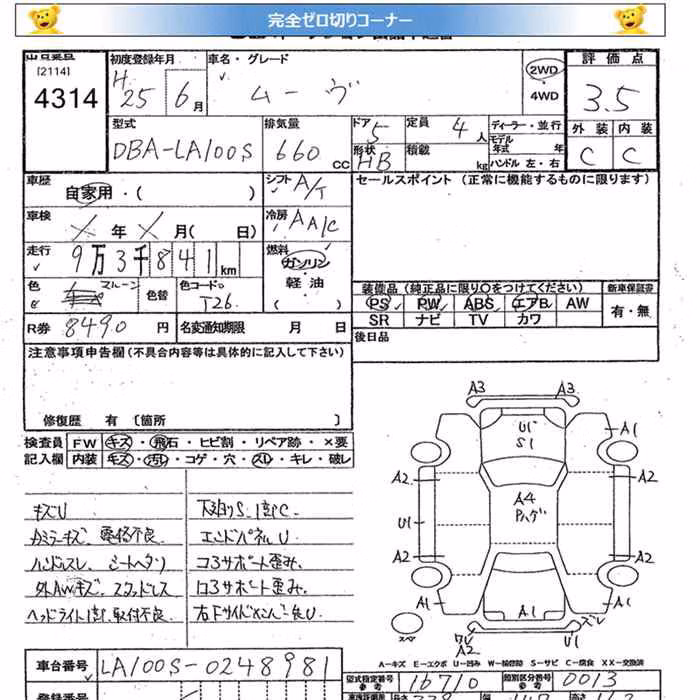 完全ゼロ切りコーナー
[2114]
4314
初度登録年月
H
25 6月
車名・グレード
ムーヴ
2WD
・
4WD
評価点
3.5
外装 内装
C C
型式
DBA-LA100S
排気量
660 CC
ドア 5
形状 HB
定員 4 人
積載 kg
ディーラー・並行
モデル
年式 年
ハンドル 左・右
車歴
自家用・( )
シフト A/T
セールスポイント (正常に機能するものに限ります)
車検
年 月( 日)
冷房 AA/C
走行
9万3千841km
燃料
ガソリン
・
軽油
( )
色
マルーン
色替
色コードNo.
T26
R券 8490 円
名変通知期限 月 日
装備品 (純正品に限り○をつけてください)
新車保証書
PS PW ABS エアB AW
SR ナビ TV カワ
有・無
後日品
注意事項申告欄(不具合内容等は具体的に記入して下さい)
修復歴 有 〔箇所 〕
検査員 FW キズ・飛石・ヒビ割・リペア跡・×要
記入欄 内装 キズ・汚レ・コゲ・穴・スレ・キレ・破レ
キズU
下廻りS、1部C
カミラーキズ、電格不良
エンドパネルU
ハンドルスレ、シートヘタリ
コ3サポート歪み
外AWキズ、スタッドレス
ロ3サポート歪み
ヘッドライト1部取付不良
A3 A3
U1
S1
A1
A2 A2
A4
Pハゲ
U1
A2 A2
A1 A1
A1
ズレ
ワレ
A2
U1
スペ
A-キズ E-エクボ U-凹み W-補修跡 S-サビ C-腐食 XX-交換済
車台番号 LA100S-0248981
型式指定番号 参考 16710
類別区分番号 参考 0013
登録番号